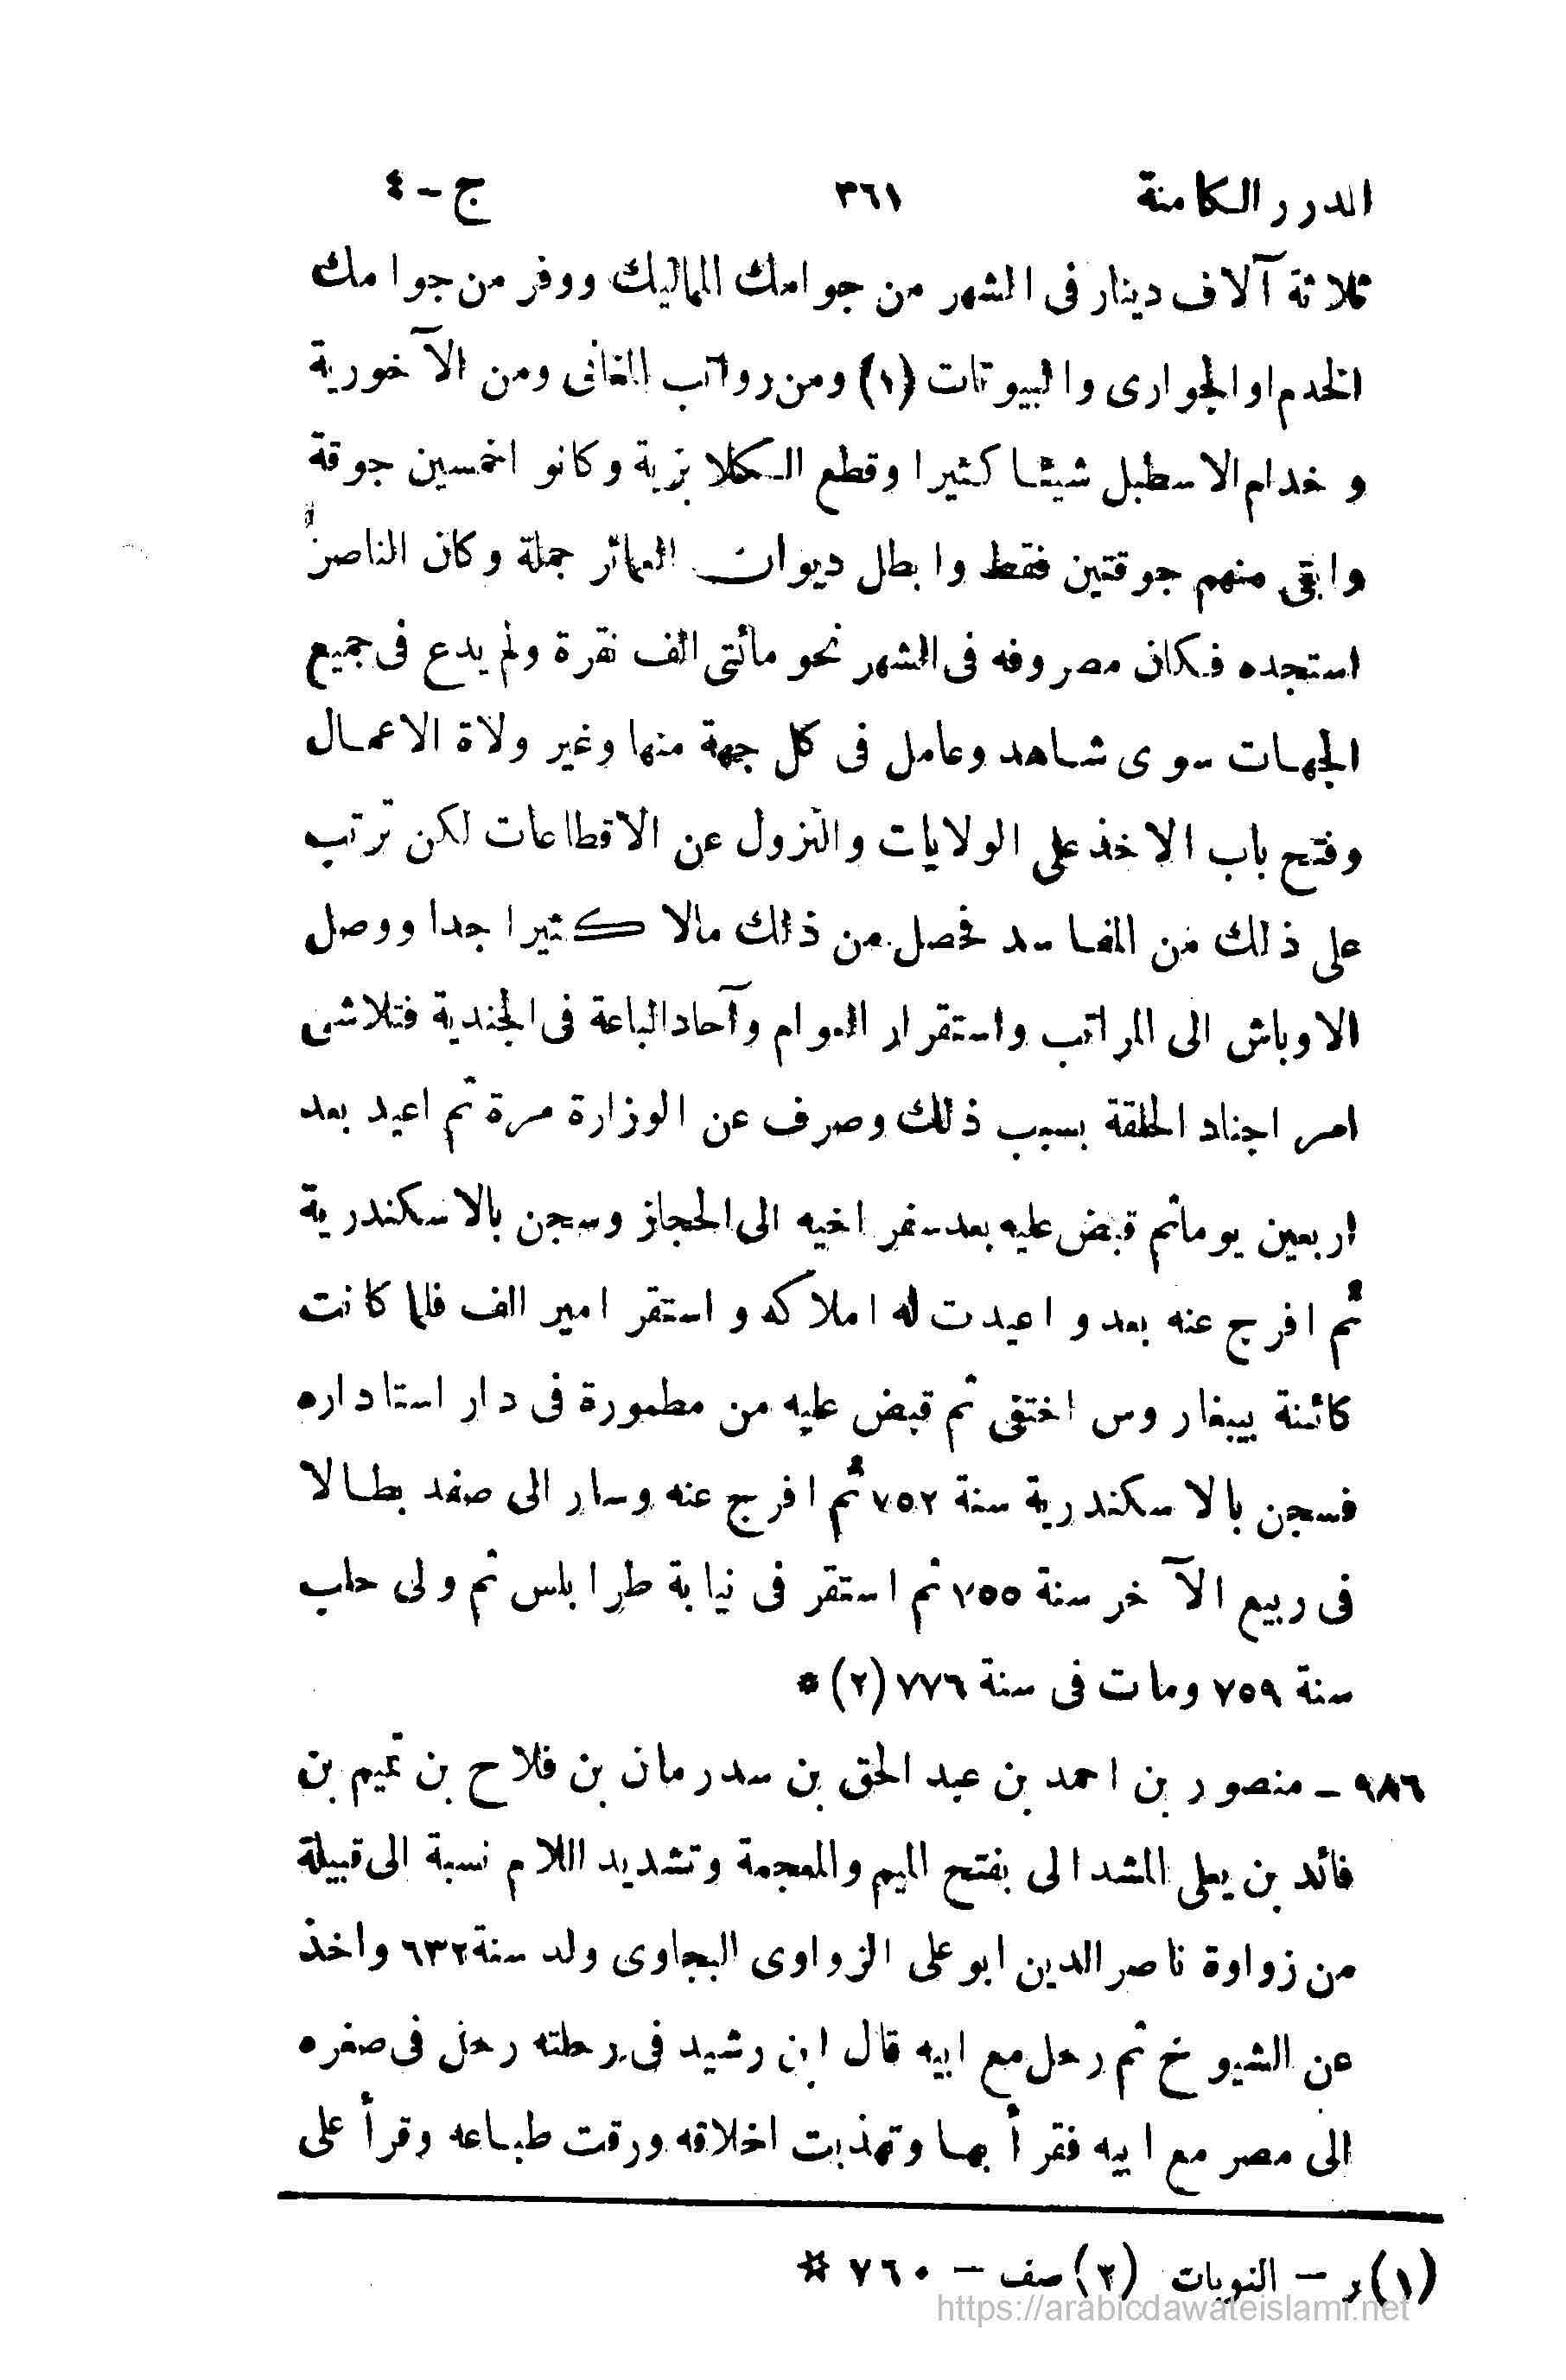 الدرر الكامنة ٣٦١ ج - ٤
ثلاثة آلاف دينار فى الشهر من جوامك المماليك ووفر من جوامك
الخدم او الجوارى والبيوتات (١) ومن رواتب المغانى ومن الآخورية
وخدام الاسطبل شيئا كثيرا وقطع الكلابزية وكانوا خمسين جوقة
وابقى منهم جوقتين فقط وابطل ديوان العمائر جملة وكان الناصر
استجده فكان مصروفه فى الشهر نحو مائتى الف نقرة ولم يدع فى جميع
الجهات سوى شاهد وعامل فى كل جهة منها وغير ولاة الاعمال
وفتح باب الاخذ على الولايات والنزول عن الاقطاعات لكن ترتب
على ذلك من المفاسد فحصل من ذلك مالا كثيرا جدا ووصل
الاوباش الى المراتب واستقرار العوام وآحاد الباعة فى الجندية فتلاشى
امر اجناد الحلقة بسبب ذلك وصرف عن الوزارة مرة ثم اعيد بعد
اربعين يوما ثم قبض عليه بعد سفر اخيه الى الحجاز وسجن بالاسكندرية
ثم افرج عنه بعد واعيدت له املاكه واستقر امير الف فلما كانت
كائنة بيبغاروس اختفى ثم قبض عليه من مطمورة فى دار استاداره
فسجن بالاسكندرية سنة ٧٥٢ ثم افرج عنه وسار الى صفد بطالا
فى ربيع الآخر سنة ٧٥٥ ثم استقر فى نيابة طرابلس ثم ولى حلب
سنة ٧٥٩ ومات فى سنة ٧٧٦ (٢) *
٩٨٦ - منصور بن احمد بن عبد الحق بن سدرمان بن فلاح بن تميم بن
فائد بن يعلى المشدالى بفتح الميم والمعجمة وتشديد اللام نسبة الى قبيلة
من زواوة ناصر الدين ابو على الزواوى البجاوى ولد سنة ٦٣٢ واخذ
عن الشيوخ ثم رحل مع ابيه قال ابن رشيد فى رحلته رحل فى صغره
الى مصر مع ابيه فقرأ بها وتهذبت اخلاقه ورقت طباعه وقرأ على
(١) ر - النوبات (٢) صف - ٧٦٠ *
https://arabicdawateislami.net